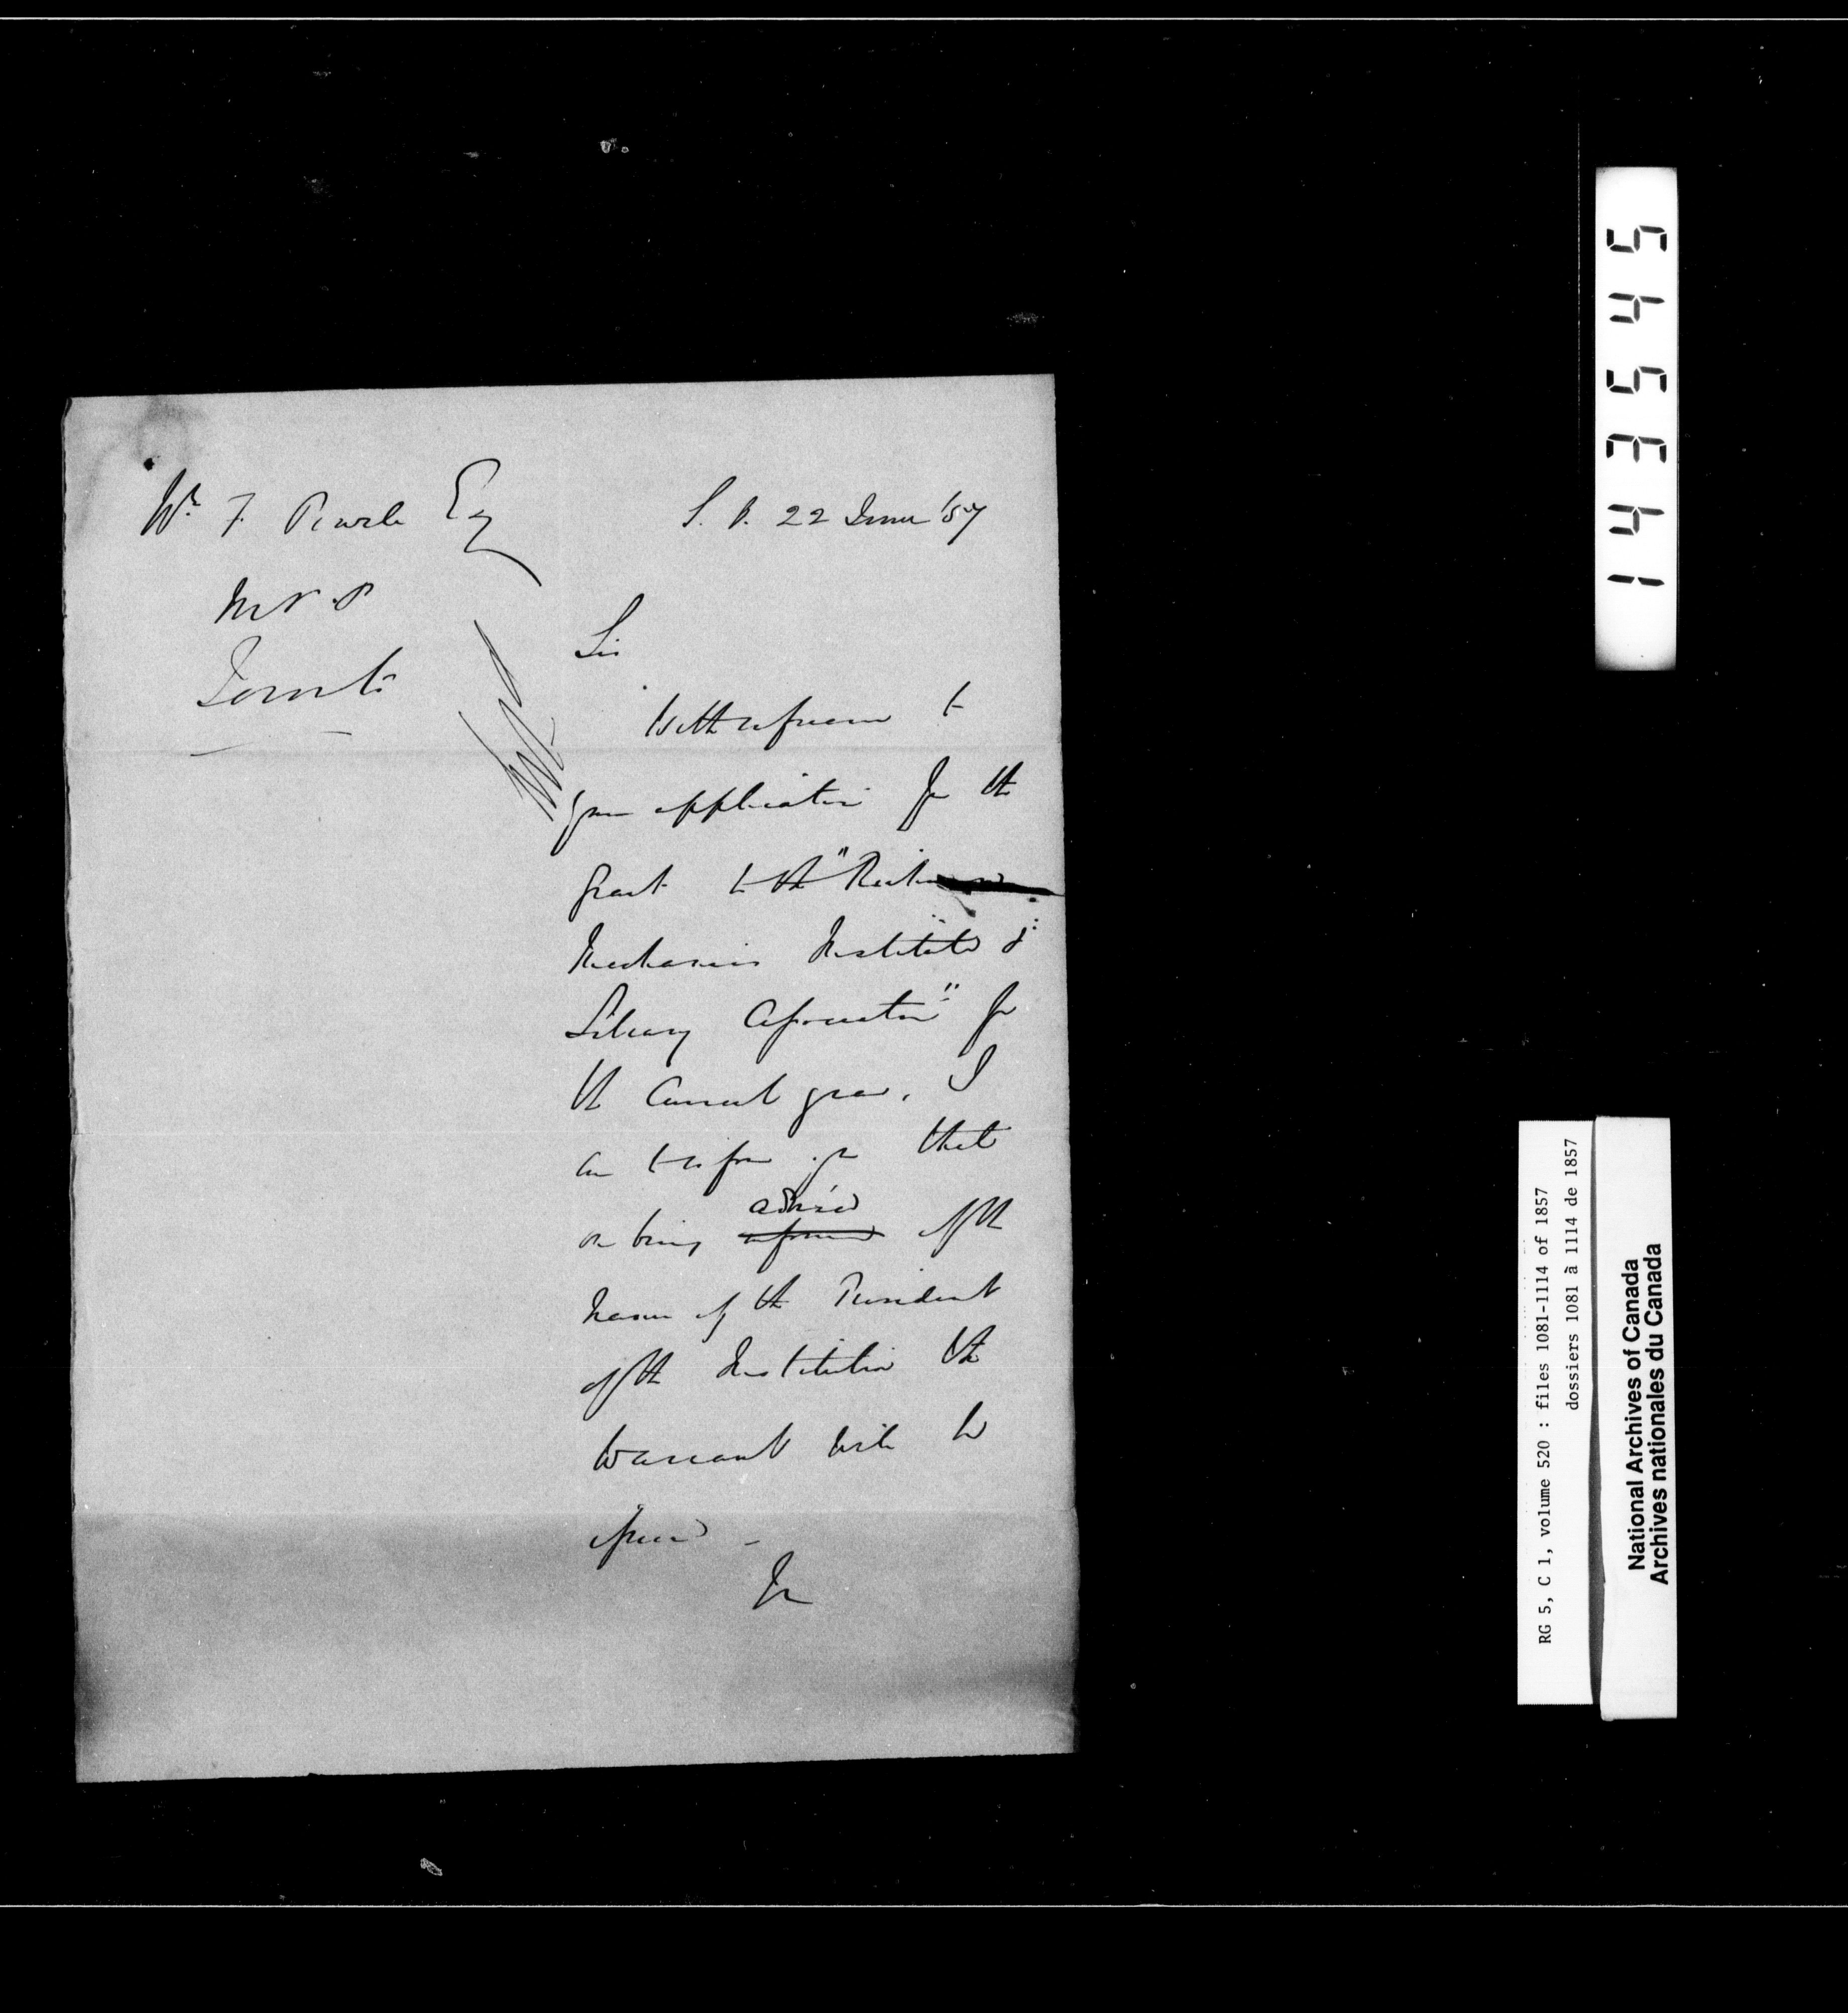 Wm F. Powell Esq
M.P.P
Toronto
S. O. 22 June '57
Sir
With reference to
your application for the
grant to the "
Mechanics Institute &
Library Association" for
the current year, I
am to inform you that
on being informed advised of the
name of the President
of the Institution the
Warrant will be
issued -
I h
143545
RG 5, C 1, volume 520 : files 1081-1114 of 1857
dossiers 1081 à 1114 de 1857
National Archives of Canada
Archives nationales du Canada